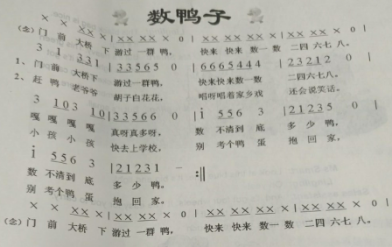 数鸭子
× × ×× × | ×× ×× × 0 | ×× ×× ×× × | ×× ×× × 0 |
(念)门 前 大桥 下 游过 一群 鸭, 快来 快来 数一数 二四六七八。
3 1 33 1 | 3 3 5 6 5 0 | 6 6 6 5 4 4 4 | 2 3 2 1 2 0 |
1、门 前 大桥下 游过一群鸭, 快来快来数一数 二四六七八。
2、赶 鸭 老爷爷 胡子白花花, 唱呀唱着家乡戏 还会说笑话。
3 1 0 3 1 0 | 3 3 5 6 6 0 | i 5 5 6 3 | 2 1 2 3 5 0 |
嘎 嘎 嘎 嘎 真呀真多呀, 数 不清到 底 多 少 鸭,
小 孩 小 孩 快去上学校, 别 考个鸭 蛋 抱 回 家,
i 5 5 6 3 | 2 1 2 3 1 - :||
数 不清到 底 多 少 鸭。
别 考个鸭 蛋 抱 回 家。
× × ×× × | ×× ×× × 0 | ×× ×× ×× × | ×× ×× × 0 |
(念)门 前 大桥 下 游过 一群 鸭, 快来 快来 数一数 二四 六七 八。